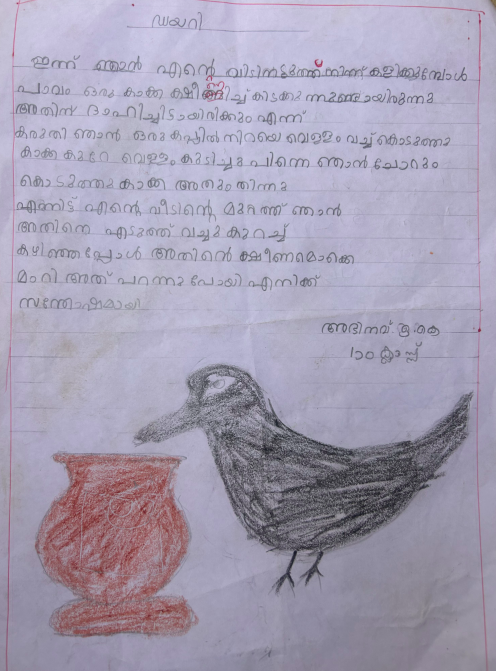 ഡയറി
ഇന്ന് ഞാൻ എന്റെ വീടിനടുത്ത് നിന്ന് കളിക്കുമ്പോൾ
പാവം ഒരു കാക്ക ക്ഷീണിച്ച് കിടക്കുന്നുണ്ടായിരുന്നു
അതിന് ദാഹിച്ചിട്ടായിരിക്കും എന്ന്
കരുതി ഞാൻ ഒരു കപ്പിൽ നിറയെ വെള്ളം വച്ച് കൊടുത്തു
കാക്ക കുറേ വെള്ളം കുടിച്ചു പിന്നെ ഞാൻ ചോറും
കൊടുത്തു കാക്ക അതും തിന്നു
എന്നിട്ട് എന്റെ വീടിന്റെ മുറ്റത്ത് ഞാൻ
അതിനെ എടുത്ത് വച്ചു കുറച്ച്
കഴിഞ്ഞപ്പോൾ അതിന്റെ ക്ഷീണമൊക്കെ
മാറി അത് പറന്നു പോയി എനിക്ക്
സന്തോഷമായി
അഭിനവ്
1ാം ക്ലാസ്സ്